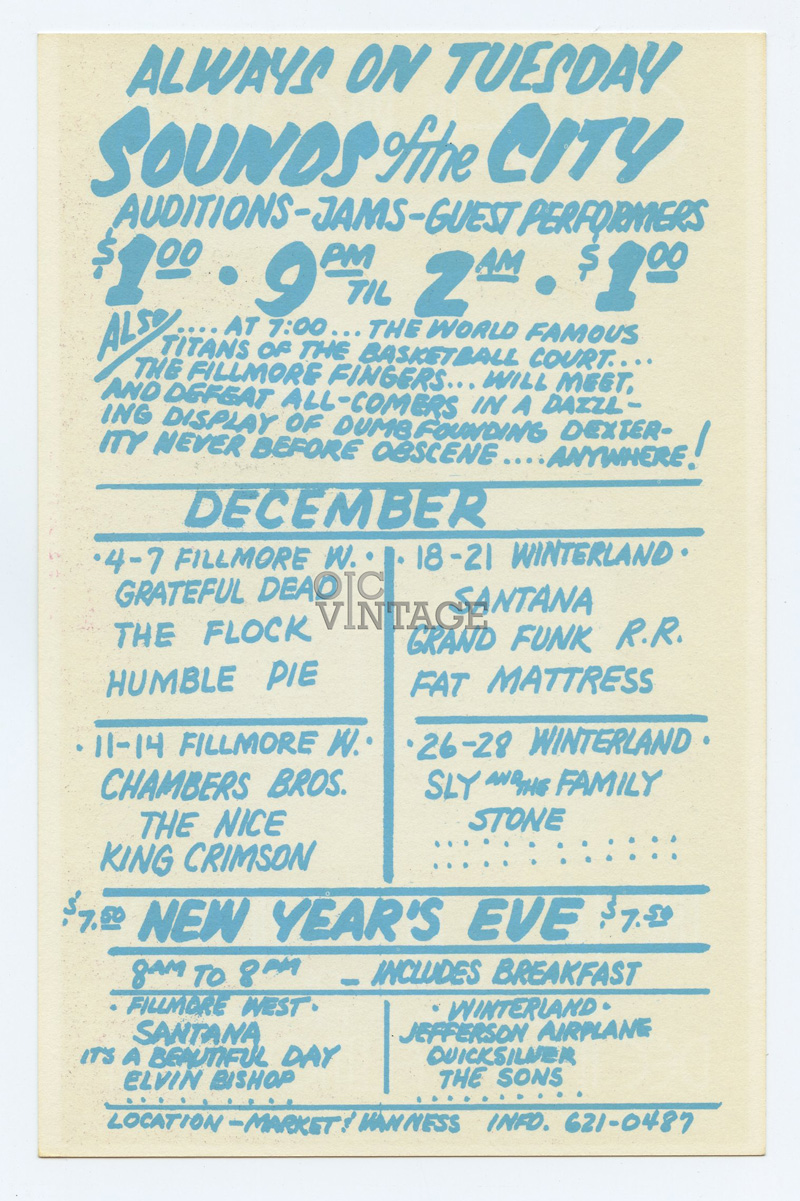 ALWAYS ON TUESDAY
SOUNDS of the CITY
AUDITIONS-JAMS-GUEST PERFORMERS
$1.00 • 9 PM TIL 2 AM • $1.00
ALSO/ .... AT 7:00... THE WORLD FAMOUS
TITANS OF THE BASKETBALL COURT....
THE FILLMORE FINGERS... WILL MEET,
AND DEFEAT ALL-COMERS IN A DAZZL-
ING DISPLAY OF DUMBFOUNDING DEXTER-
ITY NEVER BEFORE OBSCENE....ANYWHERE!
DECEMBER
•4-7 FILLMORE W.•
GRATEFUL DEAD
THE FLOCK
HUMBLE PIE
•18-21 WINTERLAND•
SANTANA
GRAND FUNK R.R.
FAT MATTRESS
OJC
VINTAGE
•11-14 FILLMORE W.•
CHAMBERS BROS.
THE NICE
KING CRIMSON
•26-28 WINTERLAND•
SLY AND THE FAMILY
STONE
$7.50 NEW YEAR'S EVE $7.50
8AM TO 8PM — INCLUDES BREAKFAST
•FILLMORE WEST•
SANTANA
IT'S A BEAUTIFUL DAY
ELVIN BISHOP
•WINTERLAND•
JEFFERSON AIRPLANE
QUICKSILVER
THE SONS
LOCATION-MARKET & VAN NESS INFO. 621-0487